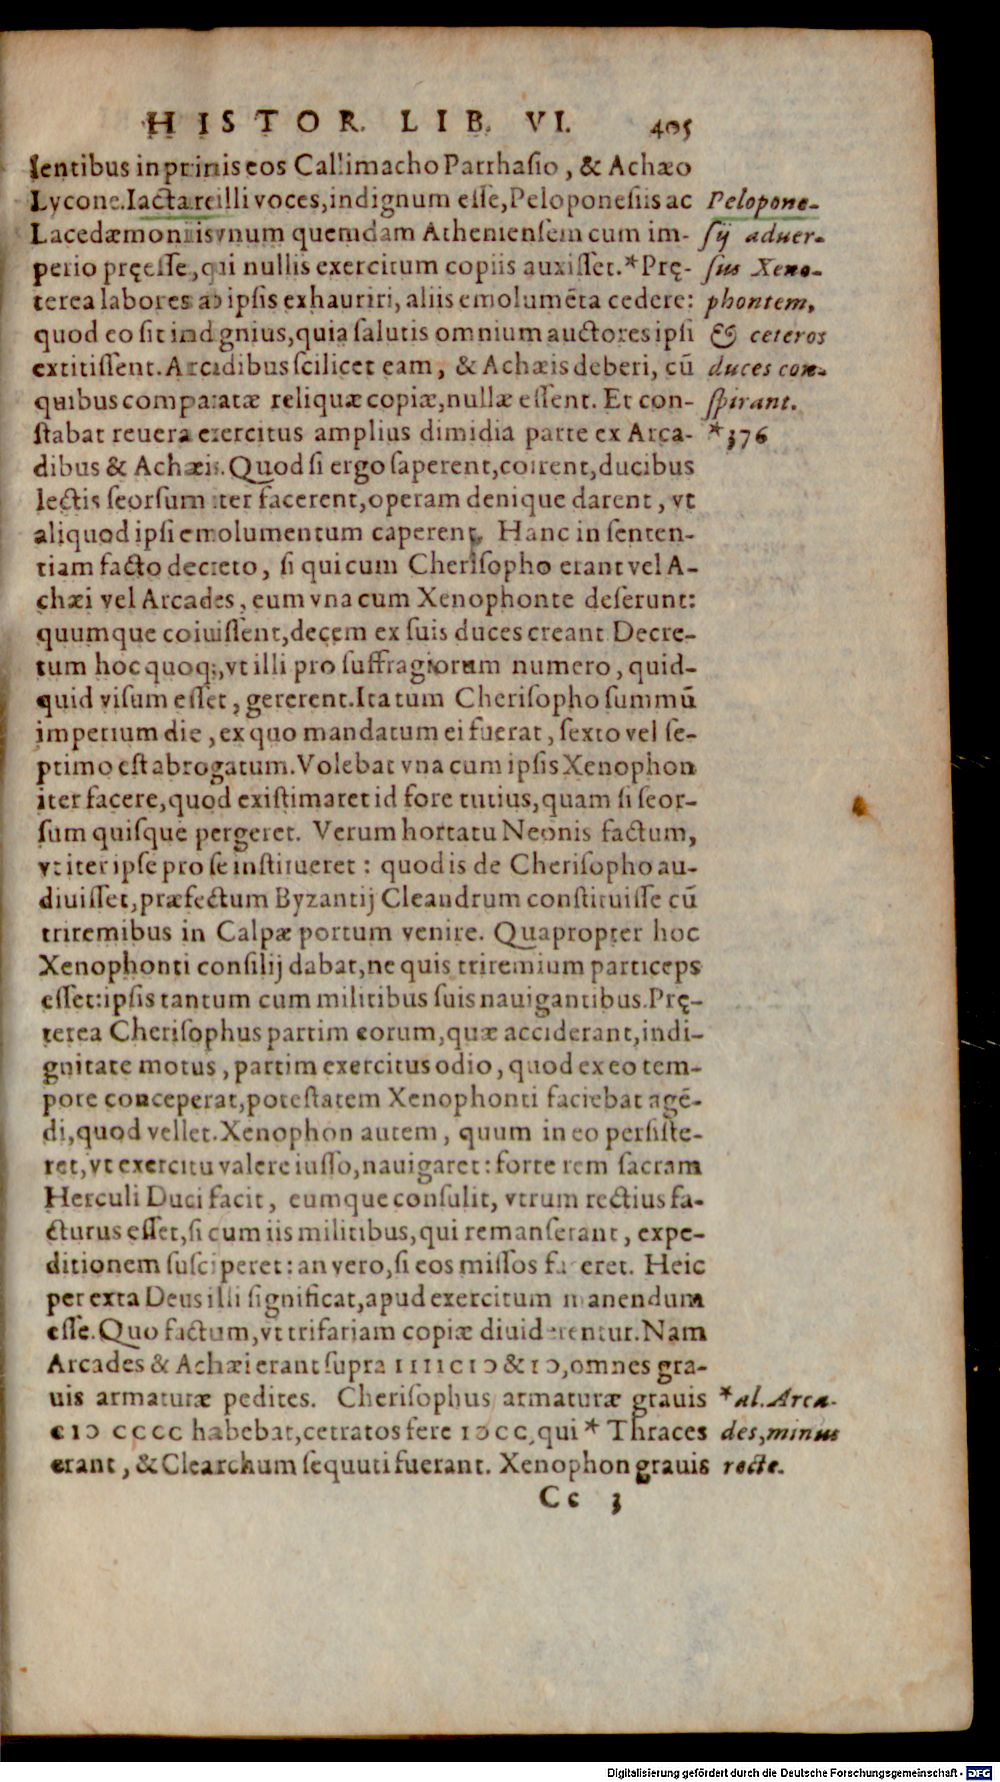 HISTOR. LIB. VI. 405
sentibus inprimis eos Callimacho Parrhasio, & Achæo
Lycone. Iactare illi voces, indignum esse, Peloponesiis ac
Lacedæmoniis vnum quemdam Atheniensem cum im-
perio pręesse, qui nullis exercitum copiis auxisset. *Prę-
terea labores ab ipsis exhauriri, aliis emolumēta cedere:
quod eo sit indignius, quia salutis omnium auctores ipsi
extitissent. Arcadibus scilicet eam, & Achæis deberi, cū
quibus comparatæ reliquæ copiæ, nullæ essent. Et con-
stabat reuera exercitus amplius dimidia parte ex Arca-
dibus & Achæis. Quod si ergo saperent, coirent, ducibus
lectis seorsum iter facerent, operam denique darent, vt
aliquod ipsi emolumentum caperent. Hanc in senten-
tiam facto decreto, si qui cum Cherisopho erant vel A-
chæi vel Arcades, eum vna cum Xenophonte deserunt:
quumque coiuissent, decem ex suis duces creant. Decre-
tum hoc quoq;, vt illi pro suffragiorum numero, quid-
quid visum esset, gererent. Ita tum Cherisopho summū
imperium die, ex quo mandatum ei fuerat, sexto vel se-
ptimo est abrogatum. Volebat vna cum ipsis Xenophon
iter facere, quod existimaret id fore tutius, quam si seor-
sum quisque pergeret. Verum hortatu Neonis factum,
vt iter ipse pro se institueret: quod is de Cherisopho au-
diuisset, præfectum Byzantij Cleandrum constituisse cū
triremibus in Calpæ portum venire. Quapropter hoc
Xenophonti consilij dabat, ne quis triremium particeps
esset: ipsis tantum cum militibus suis nauigantibus. Prę-
terea Cherisophus partim eorum, quæ acciderant, indi-
gnitate motus, partim exercitus odio, quod ex eo tem-
pore conceperat, potestatem Xenophonti faciebat agē-
di, quod vellet. Xenophon autem, quum in eo persiste-
ret, vt exercitu valere iusso, nauigaret: forte rem sacram
Herculi Duci facit, eumque consulit, vtrum rectius fa-
cturus esset, si cum iis militibus, qui remanserant, expe-
ditionem susciperet: an vero, si eos missos faceret. Heic
per exta Deus illi significat, apud exercitum manendum
esse. Quo factum, vt trifariam copiæ diuiderentur. Nam
Arcades & Achæi erant supra IIIICIↃ & IↃ, omnes gra-
uis armaturæ pedites. Cherisophus armaturæ grauis
CIↃ CCCC habebat, cetratos fere IↃCC, qui * Thraces
erant, & Clearchum sequuti fuerant. Xenophon grauis
Cc 3
Pelopone-
sij aduer-
sus Xeno-
phontem,
& ceteros
duces con-
spirant.
*376
*al. Arca-
des, minus
recte.
Digitalisierung gefördert durch die Deutsche Forschungsgemeinschaft - DFG